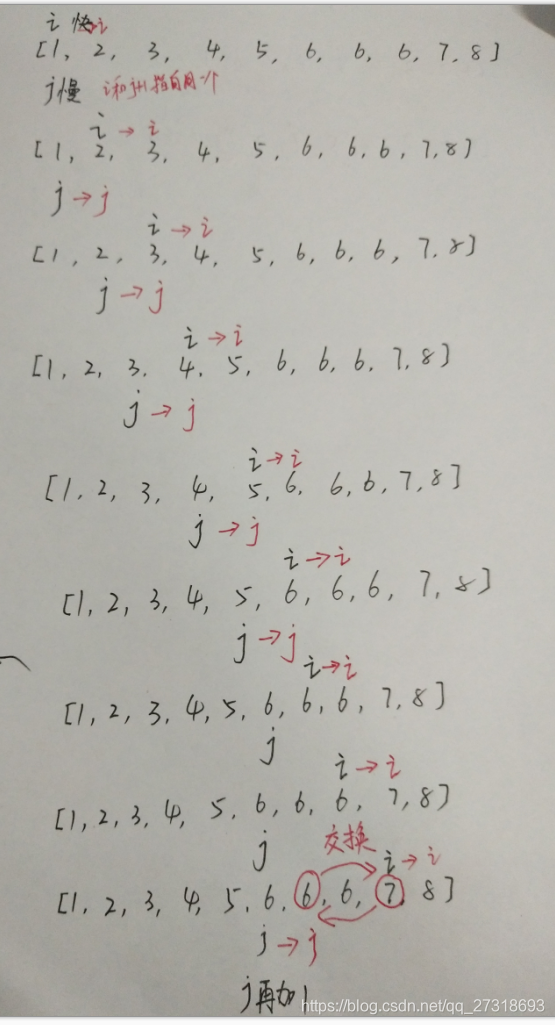 i 快 i
[1, 2, 3, 4, 5, 6, 6, 6, 7, 8]
j慢 i和j+1指向同一个
i → i
[1, 2, 3, 4, 5, 6, 6, 6, 7, 8]
j → j
i → i
[1, 2, 3, 4, 5, 6, 6, 6, 7, 8]
j → j
i → i
[1, 2, 3, 4, 5, 6, 6, 6, 7, 8]
j → j
i → i
[1, 2, 3, 4, 5, 6, 6, 6, 7, 8]
j → j
i → i
[1, 2, 3, 4, 5, 6, 6, 6, 7, 8]
j → j
i → i
[1, 2, 3, 4, 5, 6, 6, 6, 7, 8]
j
i → i
[1, 2, 3, 4, 5, 6, 6, 6, 7, 8]
j
交换
i → i
[1, 2, 3, 4, 5, 6, 6, 6, 7, 8]
j → j
j再加1
https://blog.csdn.net/qq_27318693